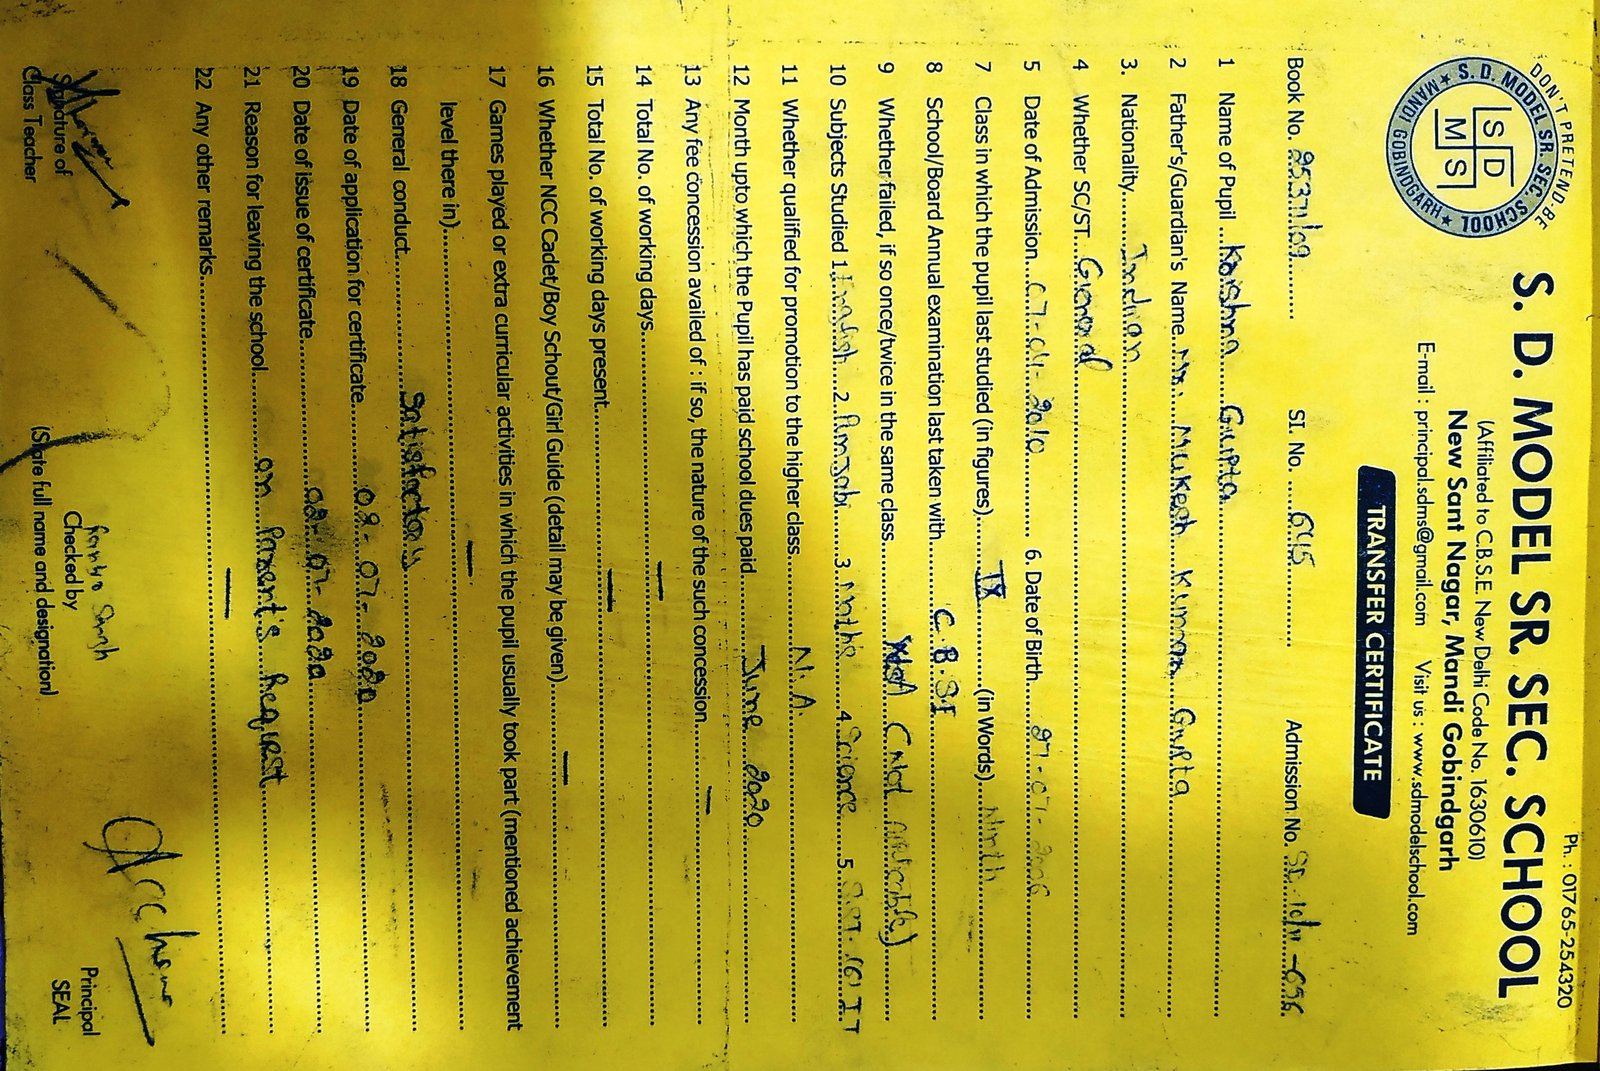 Ph. : 01765-254320
DON'T PRETEND-BE
S. D. MODEL SR. SEC. SCHOOL
MANDI GOBINDGARH
S D
M S
S. D. MODEL SR. SEC. SCHOOL
(Affiliated to C.B.S.E. New Delhi Code No. 1630610)
New Sant Nagar, Mandi Gobindgarh
E-mail : principal.sdms@gmail.com Visit us : www.sdmodelschool.com
TRANSFER CERTIFICATE
Book No. SI. No. 645 Admission No.
1 Name of Pupil Krishna Gupta
2 Father's/Guardian's Name Mr. Mukesh Kumar Gupta
3. Nationality Indian
4 Whether SC/ST General
5 Date of Admission 07-04-2010 6. Date of Birth 27-07-2006
7 Class in which the pupil last studied (in figures) IX (in Words) Ninth
8 School/Board Annual examination last taken with C.B.S.E
9 Whether failed, if so once/twice in the same class N.A (Not
10 Subjects Studied 1. English 2. Punjabi 3. Maths 4. Science 5. S.ST.
11 Whether qualified for promotion to the higher class N.A.
12 Month upto which the Pupil has paid school dues paid June 2020
13 Any fee concession availed of : if so, the nature of the such concession —
14 Total No. of working days —
15 Total No. of working days present —
16 Whether NCC Cadet/Boy Schout/Girl Guide (detail may be given) —
17 Games played or extra curricular activities in which the pupil usually took part (mentioned achievement
level there in) —
18 General conduct Satisfactory
19 Date of application for certificate 02-07-2020
20 Date of issue of certificate 02-07-2020
21 Reason for leaving the school on Parent's Request
22 Any other remarks —
Signature of
Class Teacher
Singh
Checked by
(State full name and designation)
Principal
SEAL